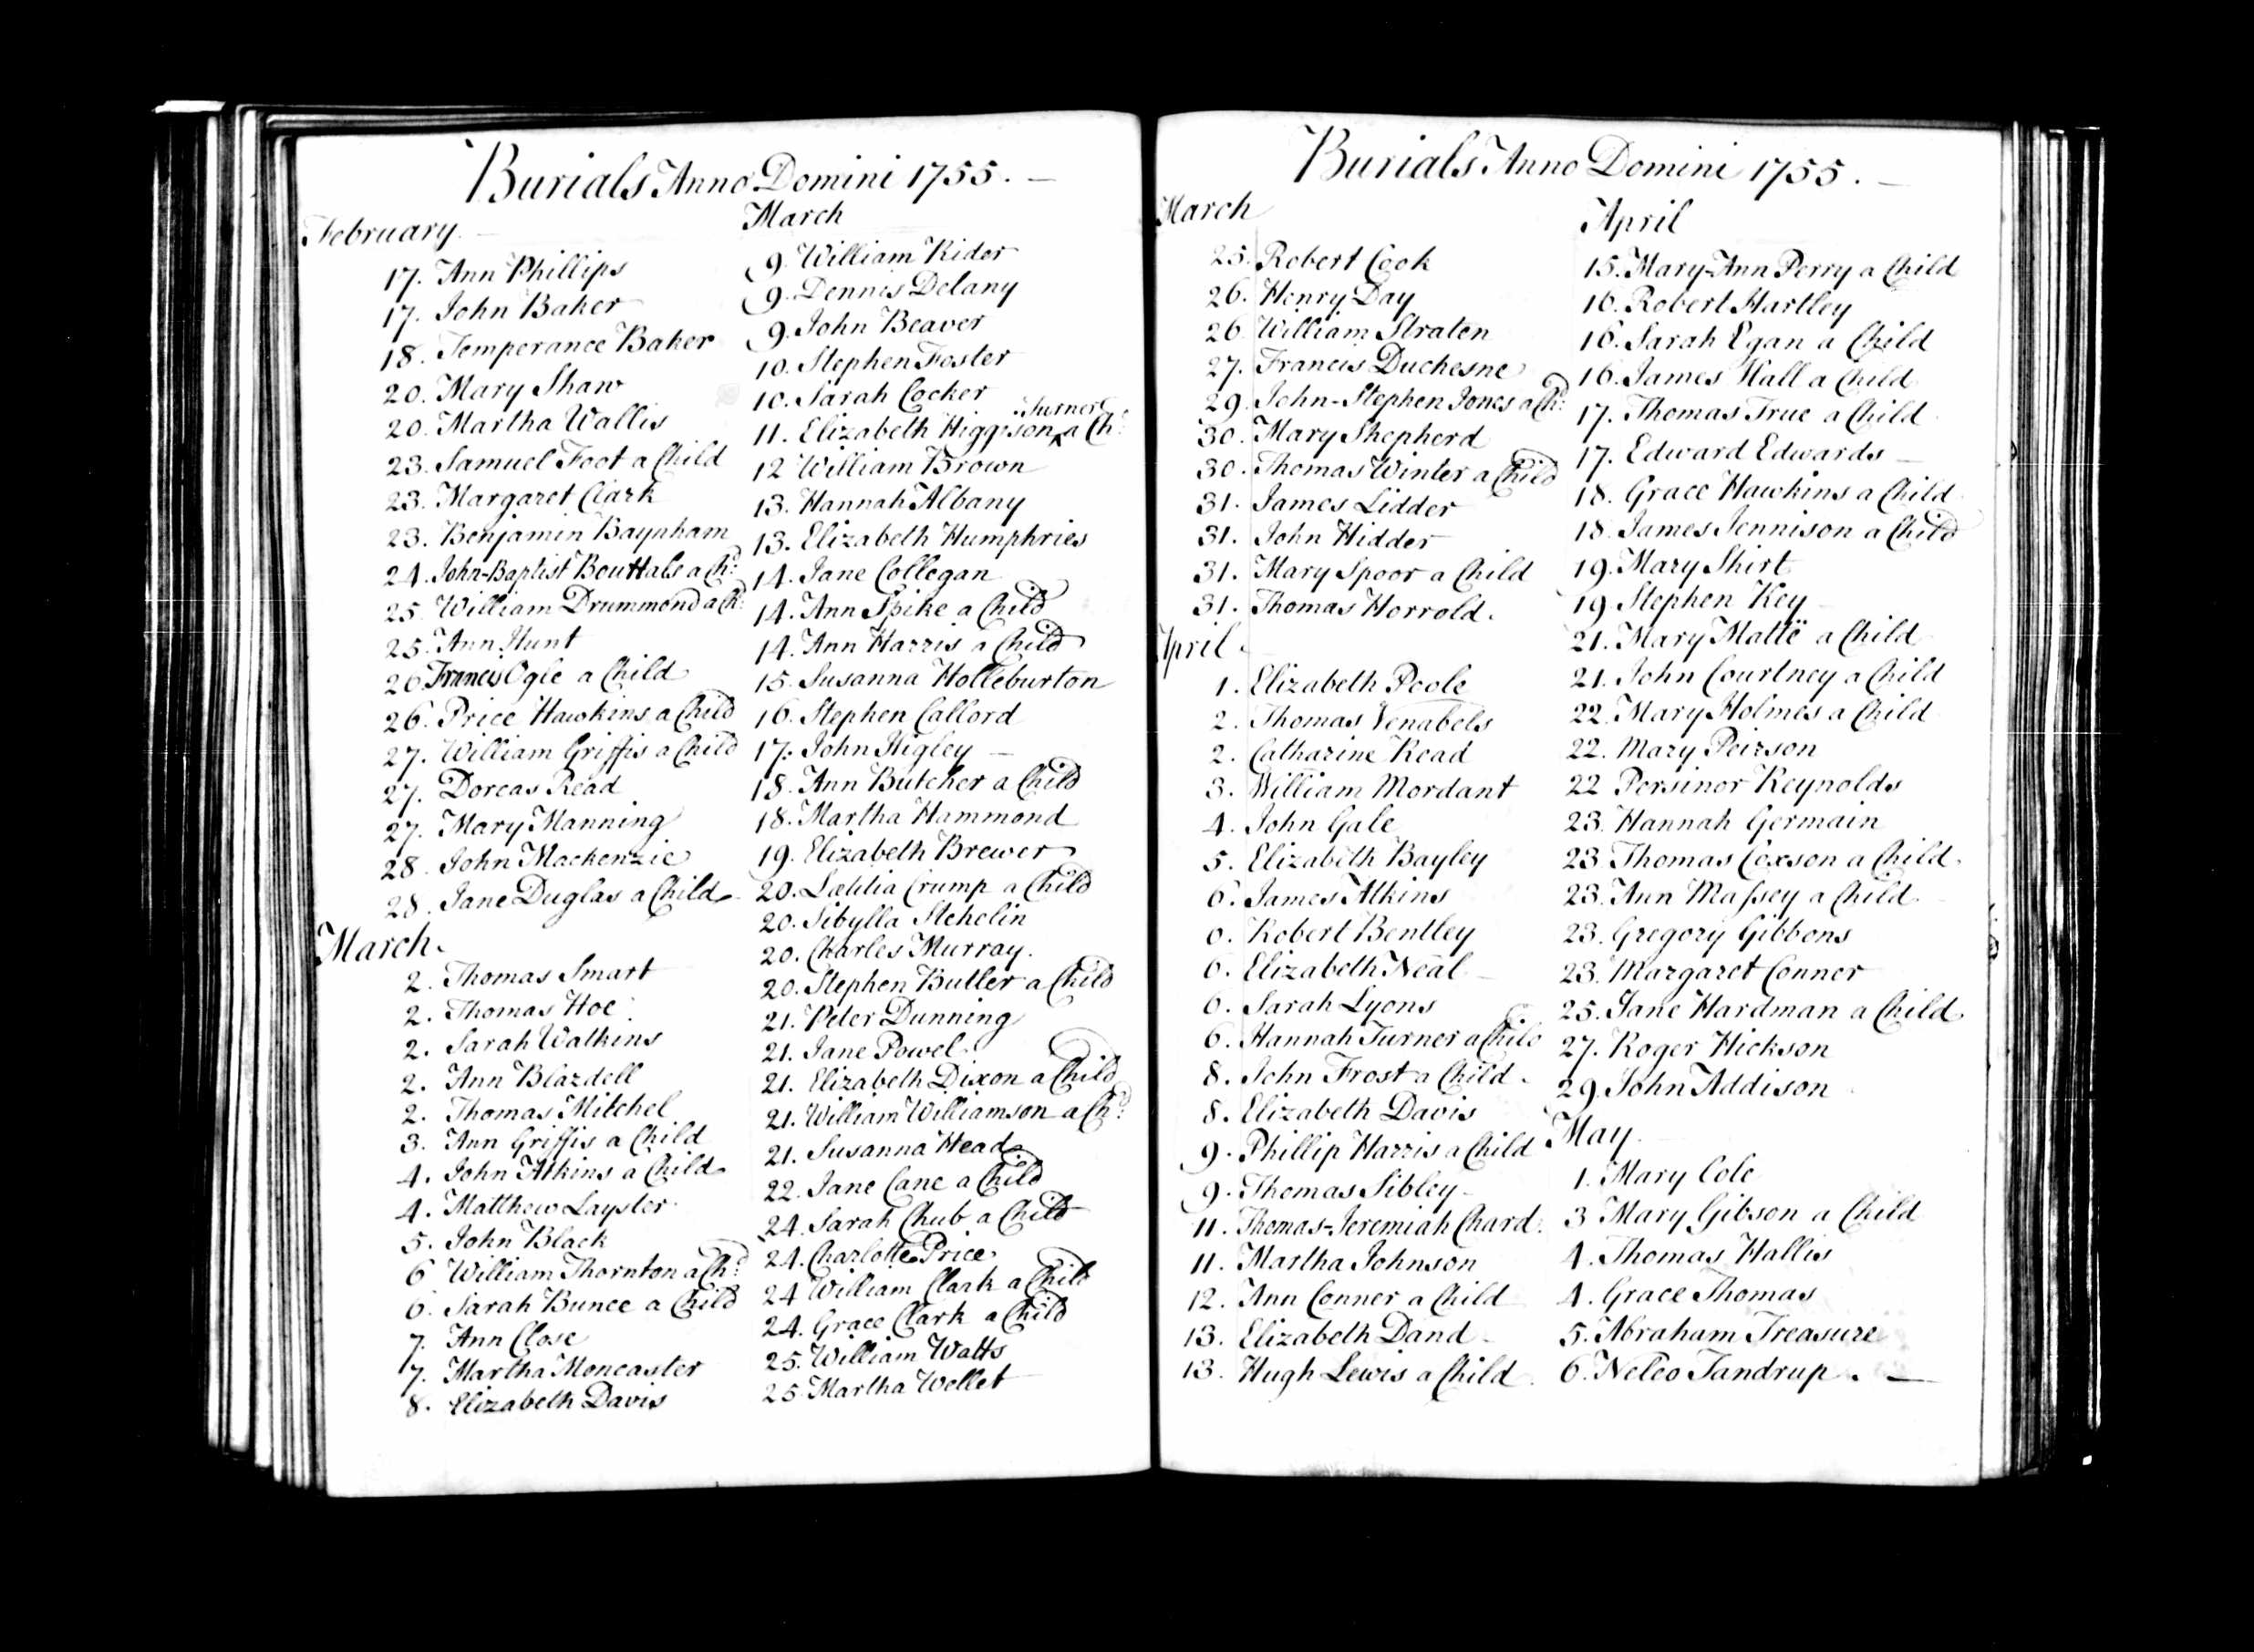 Burials Anno Domini 1755. —
February.
17. Ann Phillips
17. John Baker
18. Temperance Baker
20. Mary Shaw
20. Martha Wallis
23. Samuel Foot a Child
23. Margaret Clark
23. Benjamin Baynham
24. John-Baptist Bouttals a Ch.d
25. William Drummond a Ch.d
25. Ann Hunt
26. Francis Ogle a Child
26. Price Hawkins a Child
27. William Griffis a Child
27. Dorcas Read
27. Mary Manning
28. John Mackenzie
28. Jane Duglas a Child
March.
2. Thomas Smart
2. Thomas Hoe
2. Sarah Watkins
2. Ann Blazdell
2. Thomas Mitchel
3. Ann Griffis a Child
4. John Atkins a Child
4. Matthew Layster
5. John Black
6 William Thornton a Ch.d
6. Sarah Bunce a Child
7. Ann Close
7. Martha Moncaster
8. Elizabeth Davis
March
9. William Rider
9. Dennis Delany
9. John Beaver
10. Stephen Foster
10. Sarah Cocker
11. Elizabeth Higgison ‸Turner a Ch.d
12 William Brown
13. Hannah Albany
13. Elizabeth Humphries
14. Jane Collogan
14. Ann Spike a Child
14. Ann Harris a Child
15. Susanna Holleburton
16. Stephen Callord
17. John Higley —
18. Ann Butcher a Child
18. Martha Hammond
19. Elizabeth Brewer
20. Lætitia Crump a Child
20. Sibylla Stehelin
20. Charles Murray.
20. Stephen Butler a Child
21. Peter Dunning
21. Jane Powel
21. Elizabeth Dixon a Child
21. William Williamson a Ch.d
21. Susanna Head
22. Jane Cane a Child
24. Sarah Chub a Child
24. Charlotte Price
24 William Clark a Child
24. Grace Clark a Child
25. William Watts
25. Martha Wellet
Burials Anno Domini 1755. —
March
25. Robert Cook
26. Henry Day
26. William Straten
27. Francis Duchesne
29. John-Stephen Jones a Ch.d
30. Mary Shepherd
30. Thomas Winter a Child
31. James Lidder
31. John Hidder
31. Mary Spoor a Child
31. Thomas Horrold.
April.
1. Elizabeth Poole
2. Thomas Venabels
2. Catharine Read
3. William Mordant
4. John Gale
5. Elizabeth Bayley
6. James Atkins
6. Robert Bentley
6. Elizabeth Neal
6. Sarah Lyons
6. Hannah Turner a Child
8. John Frost a Child
8. Elizabeth Davis
9. Phillip Harris a Child
9. Thomas Sibley
11. Thomas-Jeremiah Chard.
11. Martha Johnson
12. Ann Conner a Child
13. Elizabeth Dand
13. Hugh Lewis a Child
April
15. Mary-Ann Perry a Child
16. Robert Hartley
16. Sarah Egan a Child
16. James Hall a Child
17. Thomas True a Child
17. Edward Edwards —
18. Grace Hawkins a Child
18. James Jennison a Child
19. Mary Shirt
19. Stephen Key
21. Mary Mattë a Child
21. John Courtney a Child
22. Mary Holmes a Child
22. Mary Peirson
22 Persinor Reynolds
23. Hannah Germain
23. Thomas Coxson a Child
23. Ann Massey a Child
23. Gregory Gibbons
23. Margaret Conner
25. Jane Hardman a Child
27. Roger Hickson
29. John Addison
May.
1. Mary Cole
3 Mary Gibson a Child
4. Thomas Hallis
4. Grace Thomas
5. Abraham Treasure
6. Neleo Tandrup. —